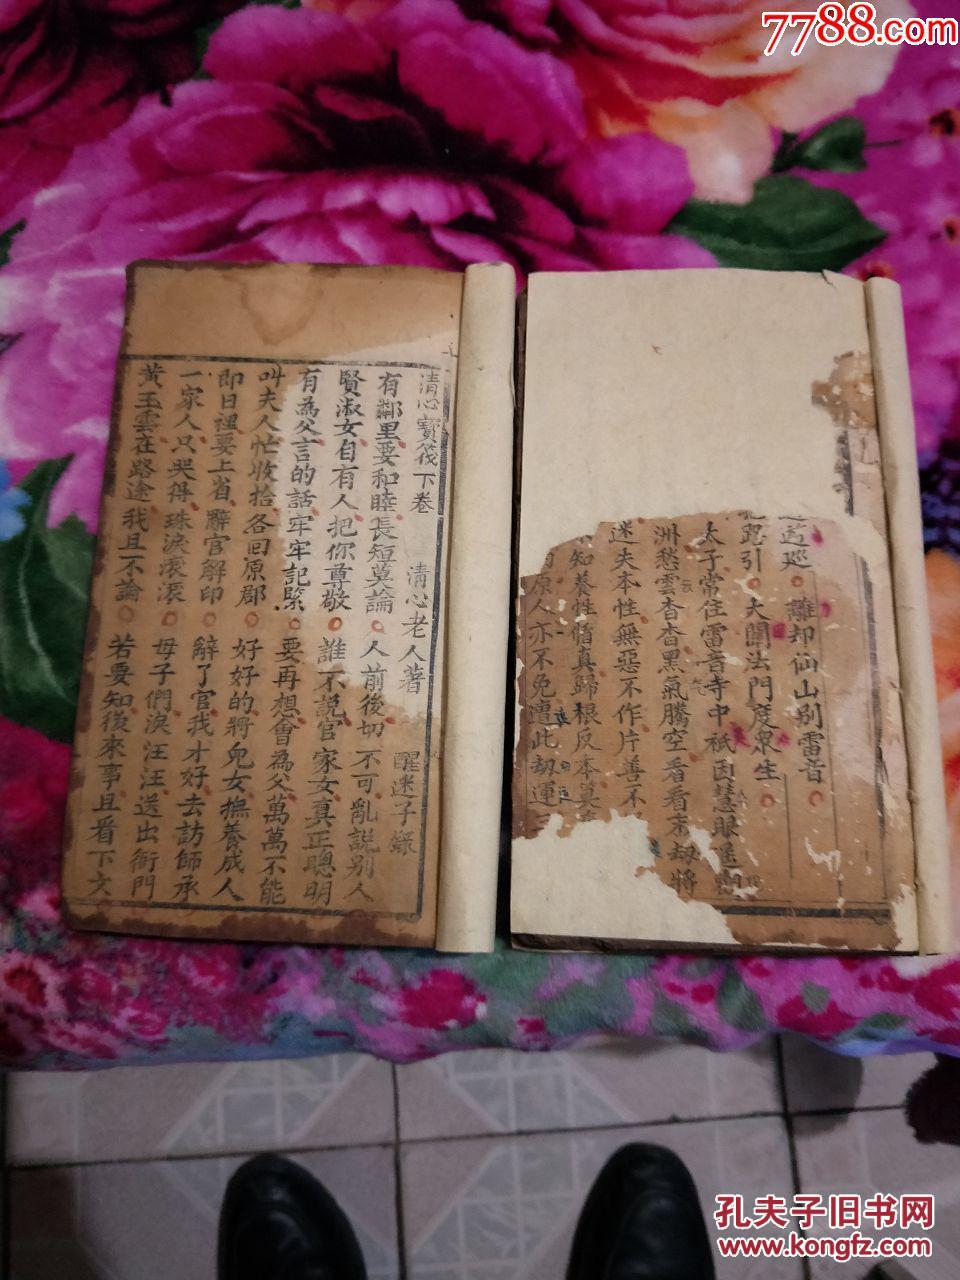 7788.com
清心寶筏下卷 清心老人著 醒迷子錄
有鄰里要和睦長短莫論 人前後切不可亂説別人
賢淑女自有人把你尊敬 誰不説官家女真正聰明
有為父言的話牢牢記緊 要再想會為父萬萬不能
叫夫人忙收拾各回原郡 好好的將兒女撫養成人
即日裡要上省辭官解印 辭了官我才好去訪師承
一家人只哭得珠淚滾滾 母子們淚汪汪送出衙門
黃玉雲在路途我且不論 若要知後來事且看下文
巡 離却仙山別雷音
引 大開法門度衆生
太子常住雷音寺中祇因慧眼遙
洲愁雲杳杳黑氣騰空看看末劫將
迷失本性無惡不作片善不
知養性脩真歸根反本莫
原人亦不免遭此劫運
孔夫子旧书网
www.kongfz.com